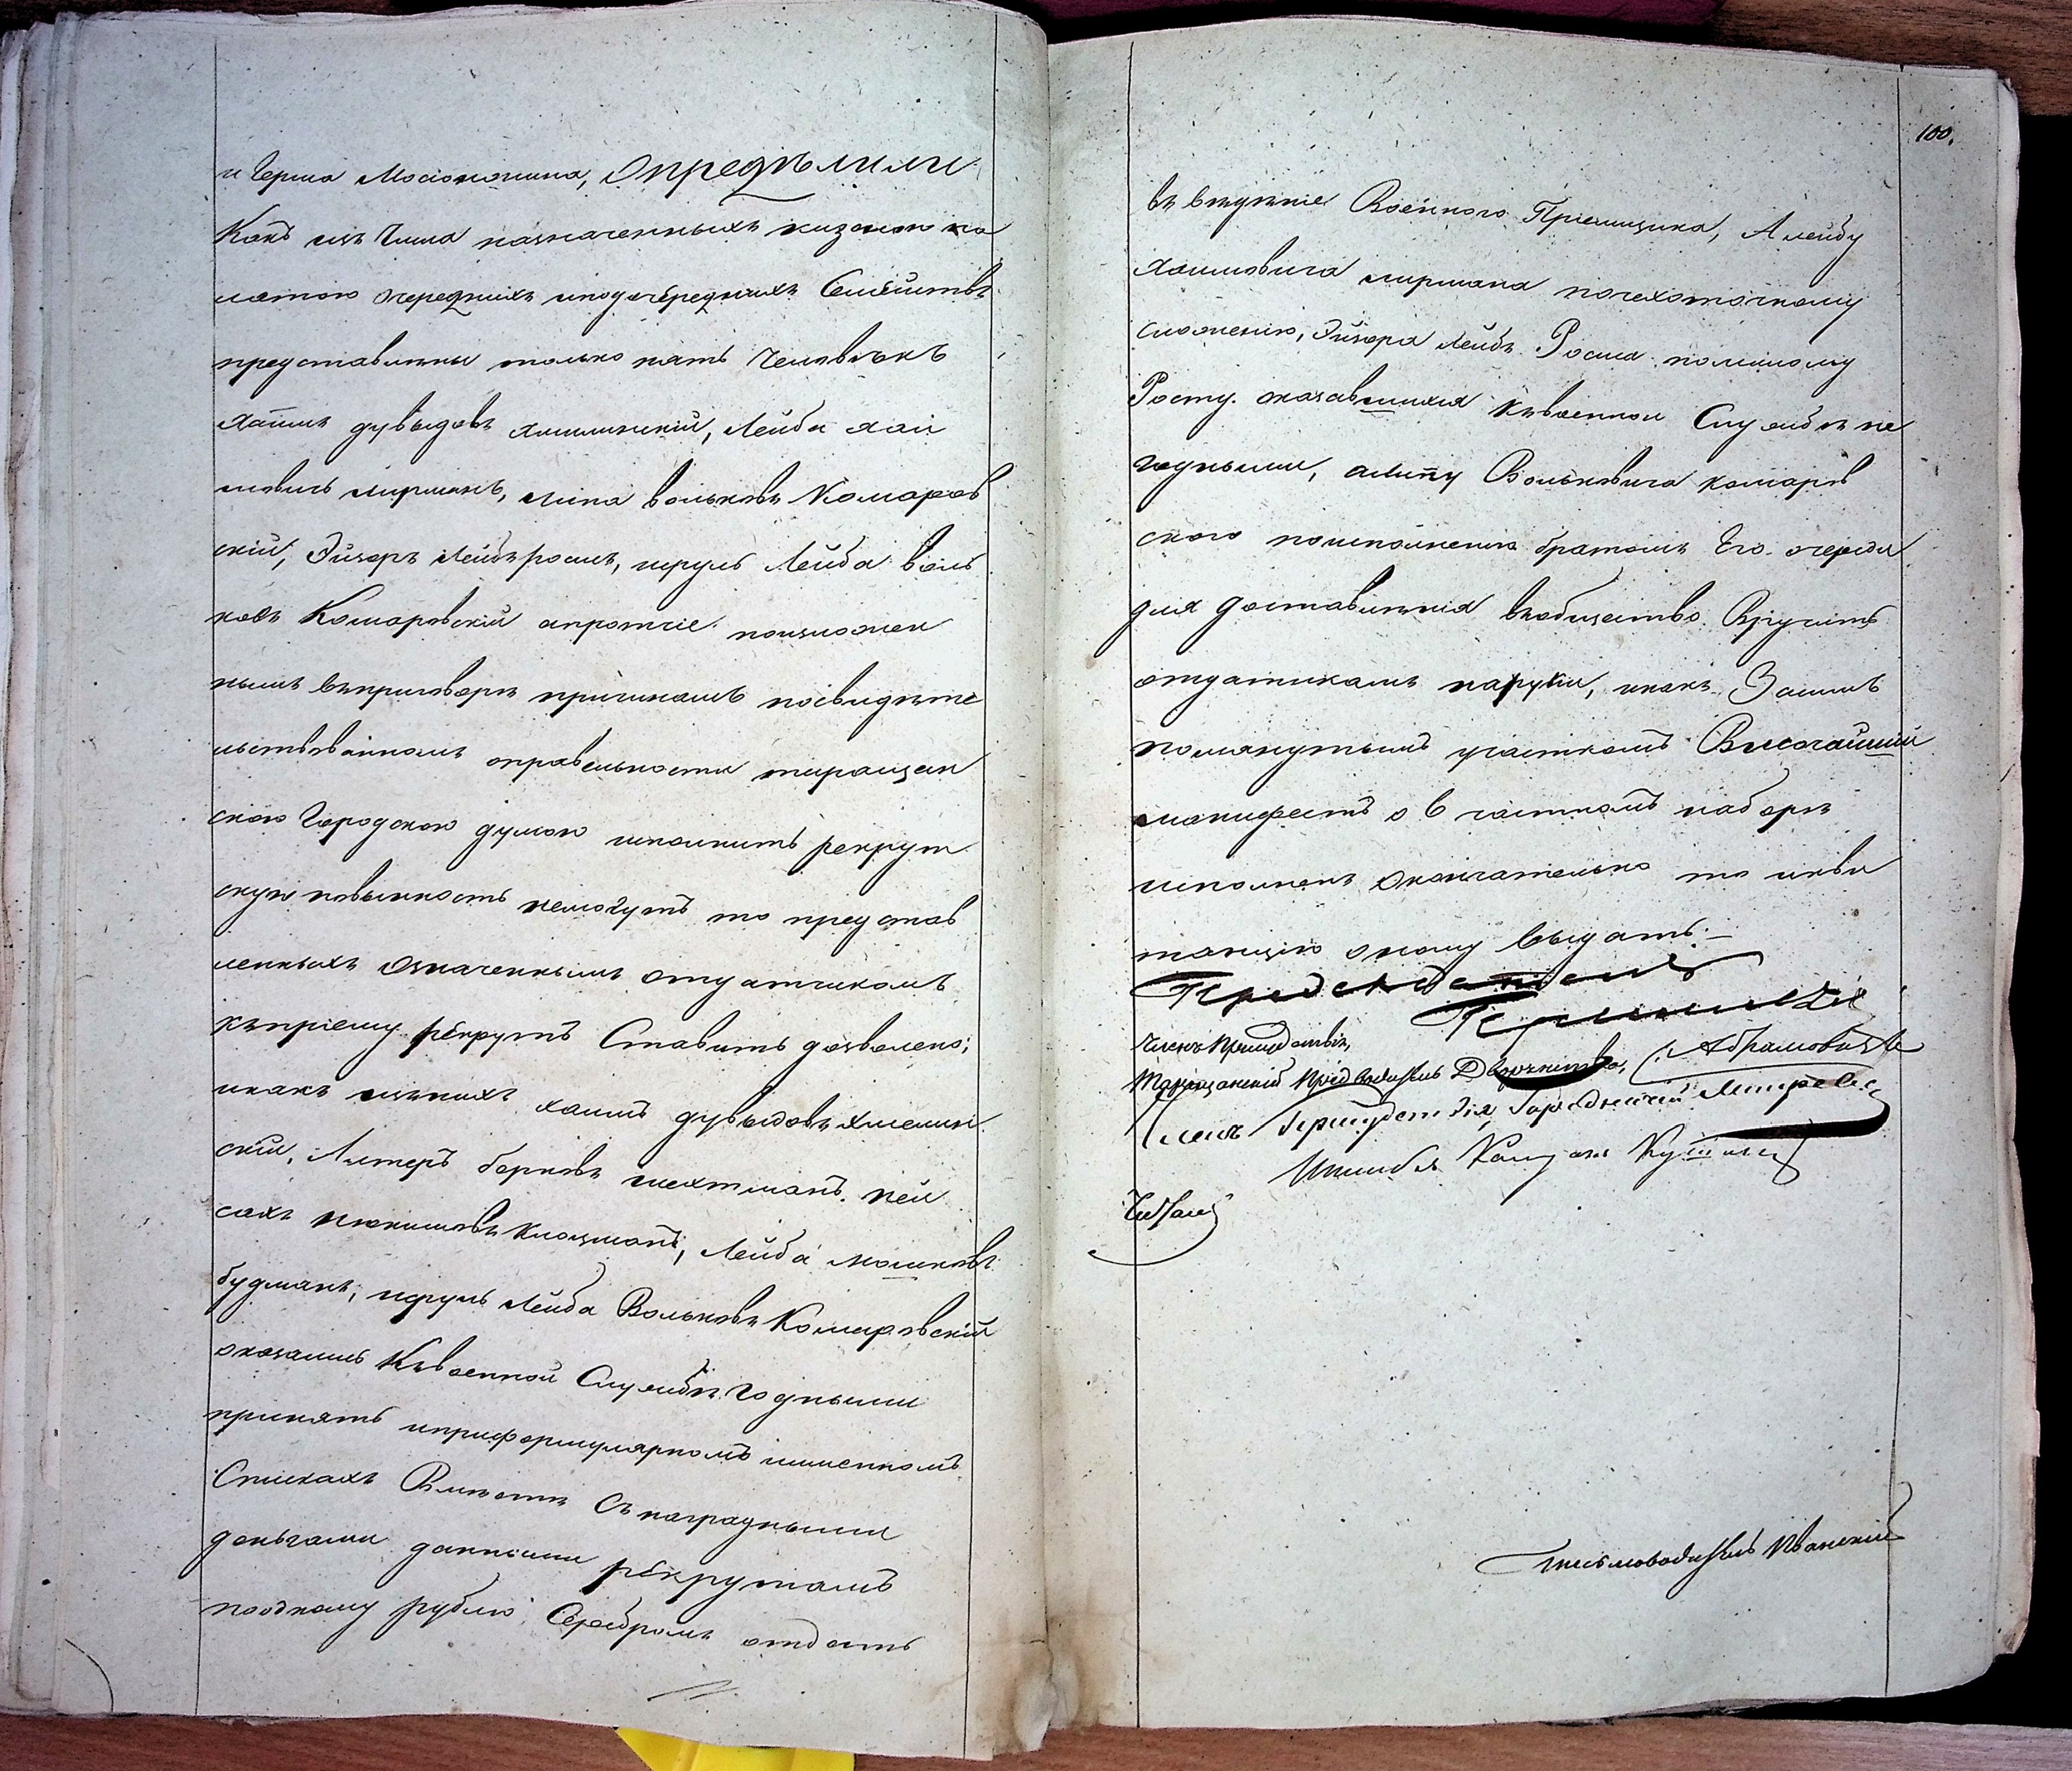 и Герша Мосіонжника, Опредѣлили
Какъ изъ числа назначенныхъ казенною па
латою очередныхъ иподочередныхъ Семействъ
представлены только пять человѣкъ
Хаимъ дувыдовъ хмилинскій, Лейба хаи
мовичъ лирманъ, Липа вольковъ Комаров
скій, Эйзеръ Лейбъ росинъ, исруль Лейба воль
ковъ Комаровскій апротчіе поизложен
нымъ въприговорѣ причинамъ посвидѣте
льствованнымъ оправельности таращан
скою Городскою думою исполнить рекрут
скую повынность немогутъ то представ
ленныхъ Означеннымъ отдатчикомъ
къпріему рекрутъ Ставить дозволено;
икакъ изънихъ хаимъ дувыдовъ хмелин
скій, Лятеръ берковъ шехтманъ, пей
сахъ клоцманъ, Лейба мошковъ
будманъ, исруль Лейба Вольковъ Комаровскій
оказались Къвоенной Службѣ годными
принять иприформулярномъ иименномъ
Спискахъ Вмѣстѣ Съ наградными
деньгами данными рекрутамъ
поодному рублю Серебромъ отдать
100.
въ вѣдѣніе Военного Пріемщика, А лейбу
Хаимовича лирмана почехоточному
сложенію, Эйзера Лейбъ Росина помалому
Росту оказавшихся Къвоенной Службѣ не
годными, алипу Вольковича комаров
ского поисполненію братомъ Его очереди
для доставленія вкобщество Вручить
отдатчикамъ наруки, икакъ Засимъ
помянутымъ участкомъ Высочайшій
манифестъ о 6 частномъ наборѣ
исполненъ Окончательно то икви
танцію оному выдать.—
Предсѣдатель
Членъ Присудствія,
Таращанскій Предводитель Дворянства, Абрамовичъ
Членъ Присудствія, Городничій
Читалъ
Письмоводитель Иванскій